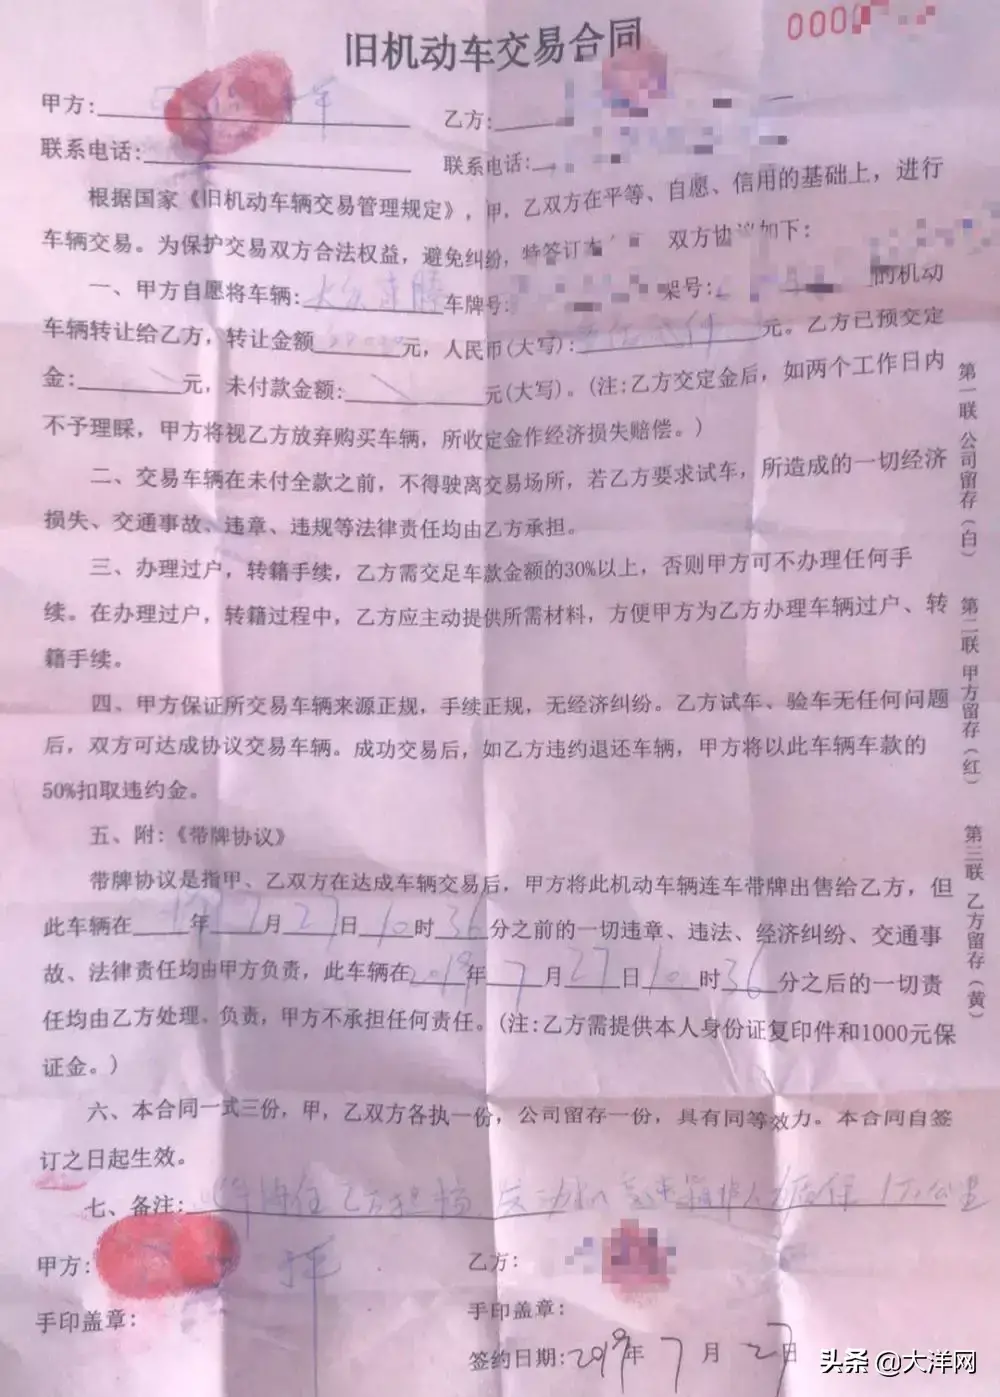 旧机动车交易合同
000
甲方:
乙方:
联系电话:
联系电话:
根据国家《旧机动车辆交易管理规定》，甲，乙双方在平等、自愿、信用的基础上，进行
车辆交易。为保护交易双方合法权益，避免纠纷，特签订本 双方协议如下：
一、甲方自愿将车辆:大众速腾车牌号: 架号: 的机动
车辆转让给乙方，转让金额 元，人民币(大写): 元。乙方已预交定
金: 元，未付款金额: 元(大写)。(注:乙方交定金后，如两个工作日内
不予理睬，甲方将视乙方放弃购买车辆，所收定金作经济损失赔偿。)
二、交易车辆在未付全款之前，不得驶离交易场所，若乙方要求试车，所造成的一切经济
损失、交通事故、违章、违规等法律责任均由乙方承担。
三、办理过户，转籍手续，乙方需交足车款金额的30%以上，否则甲方可不办理任何手
续。在办理过户，转籍过程中，乙方应主动提供所需材料，方便甲方为乙方办理车辆过户、转
籍手续。
四、甲方保证所交易车辆来源正规，手续正规，无经济纠纷。乙方试车、验车无任何问题
后，双方可达成协议交易车辆。成功交易后，如乙方违约退还车辆，甲方将以此车辆车款的
50%扣取违约金。
五、附:《带牌协议》
带牌协议是指甲、乙双方在达成车辆交易后，甲方将此机动车辆连车带牌出售给乙方，但
此车辆在 年7月27日10时36分之前的一切违章、违法、经济纠纷、交通事
故、法律责任均由甲方负责，此车辆在2019年7月27日10时36分之后的一切责
任均由乙方处理。负责，甲方不承担任何责任。(注:乙方需提供本人身份证复印件和1000元保
证金。)
六、本合同一式三份，甲，乙双方各执一份，公司留存一份，具有同等效力。本合同自签
订之日起生效。
七、备注: 乙方 发动机 变速箱 质保 1万公里
甲方:
乙方:
手印盖章:
手印盖章:
签约日期:2019年7月27日
第一联 公司留存(白)
第二联 甲方留存(红)
第三联 乙方留存(黄)
头条 @大洋网